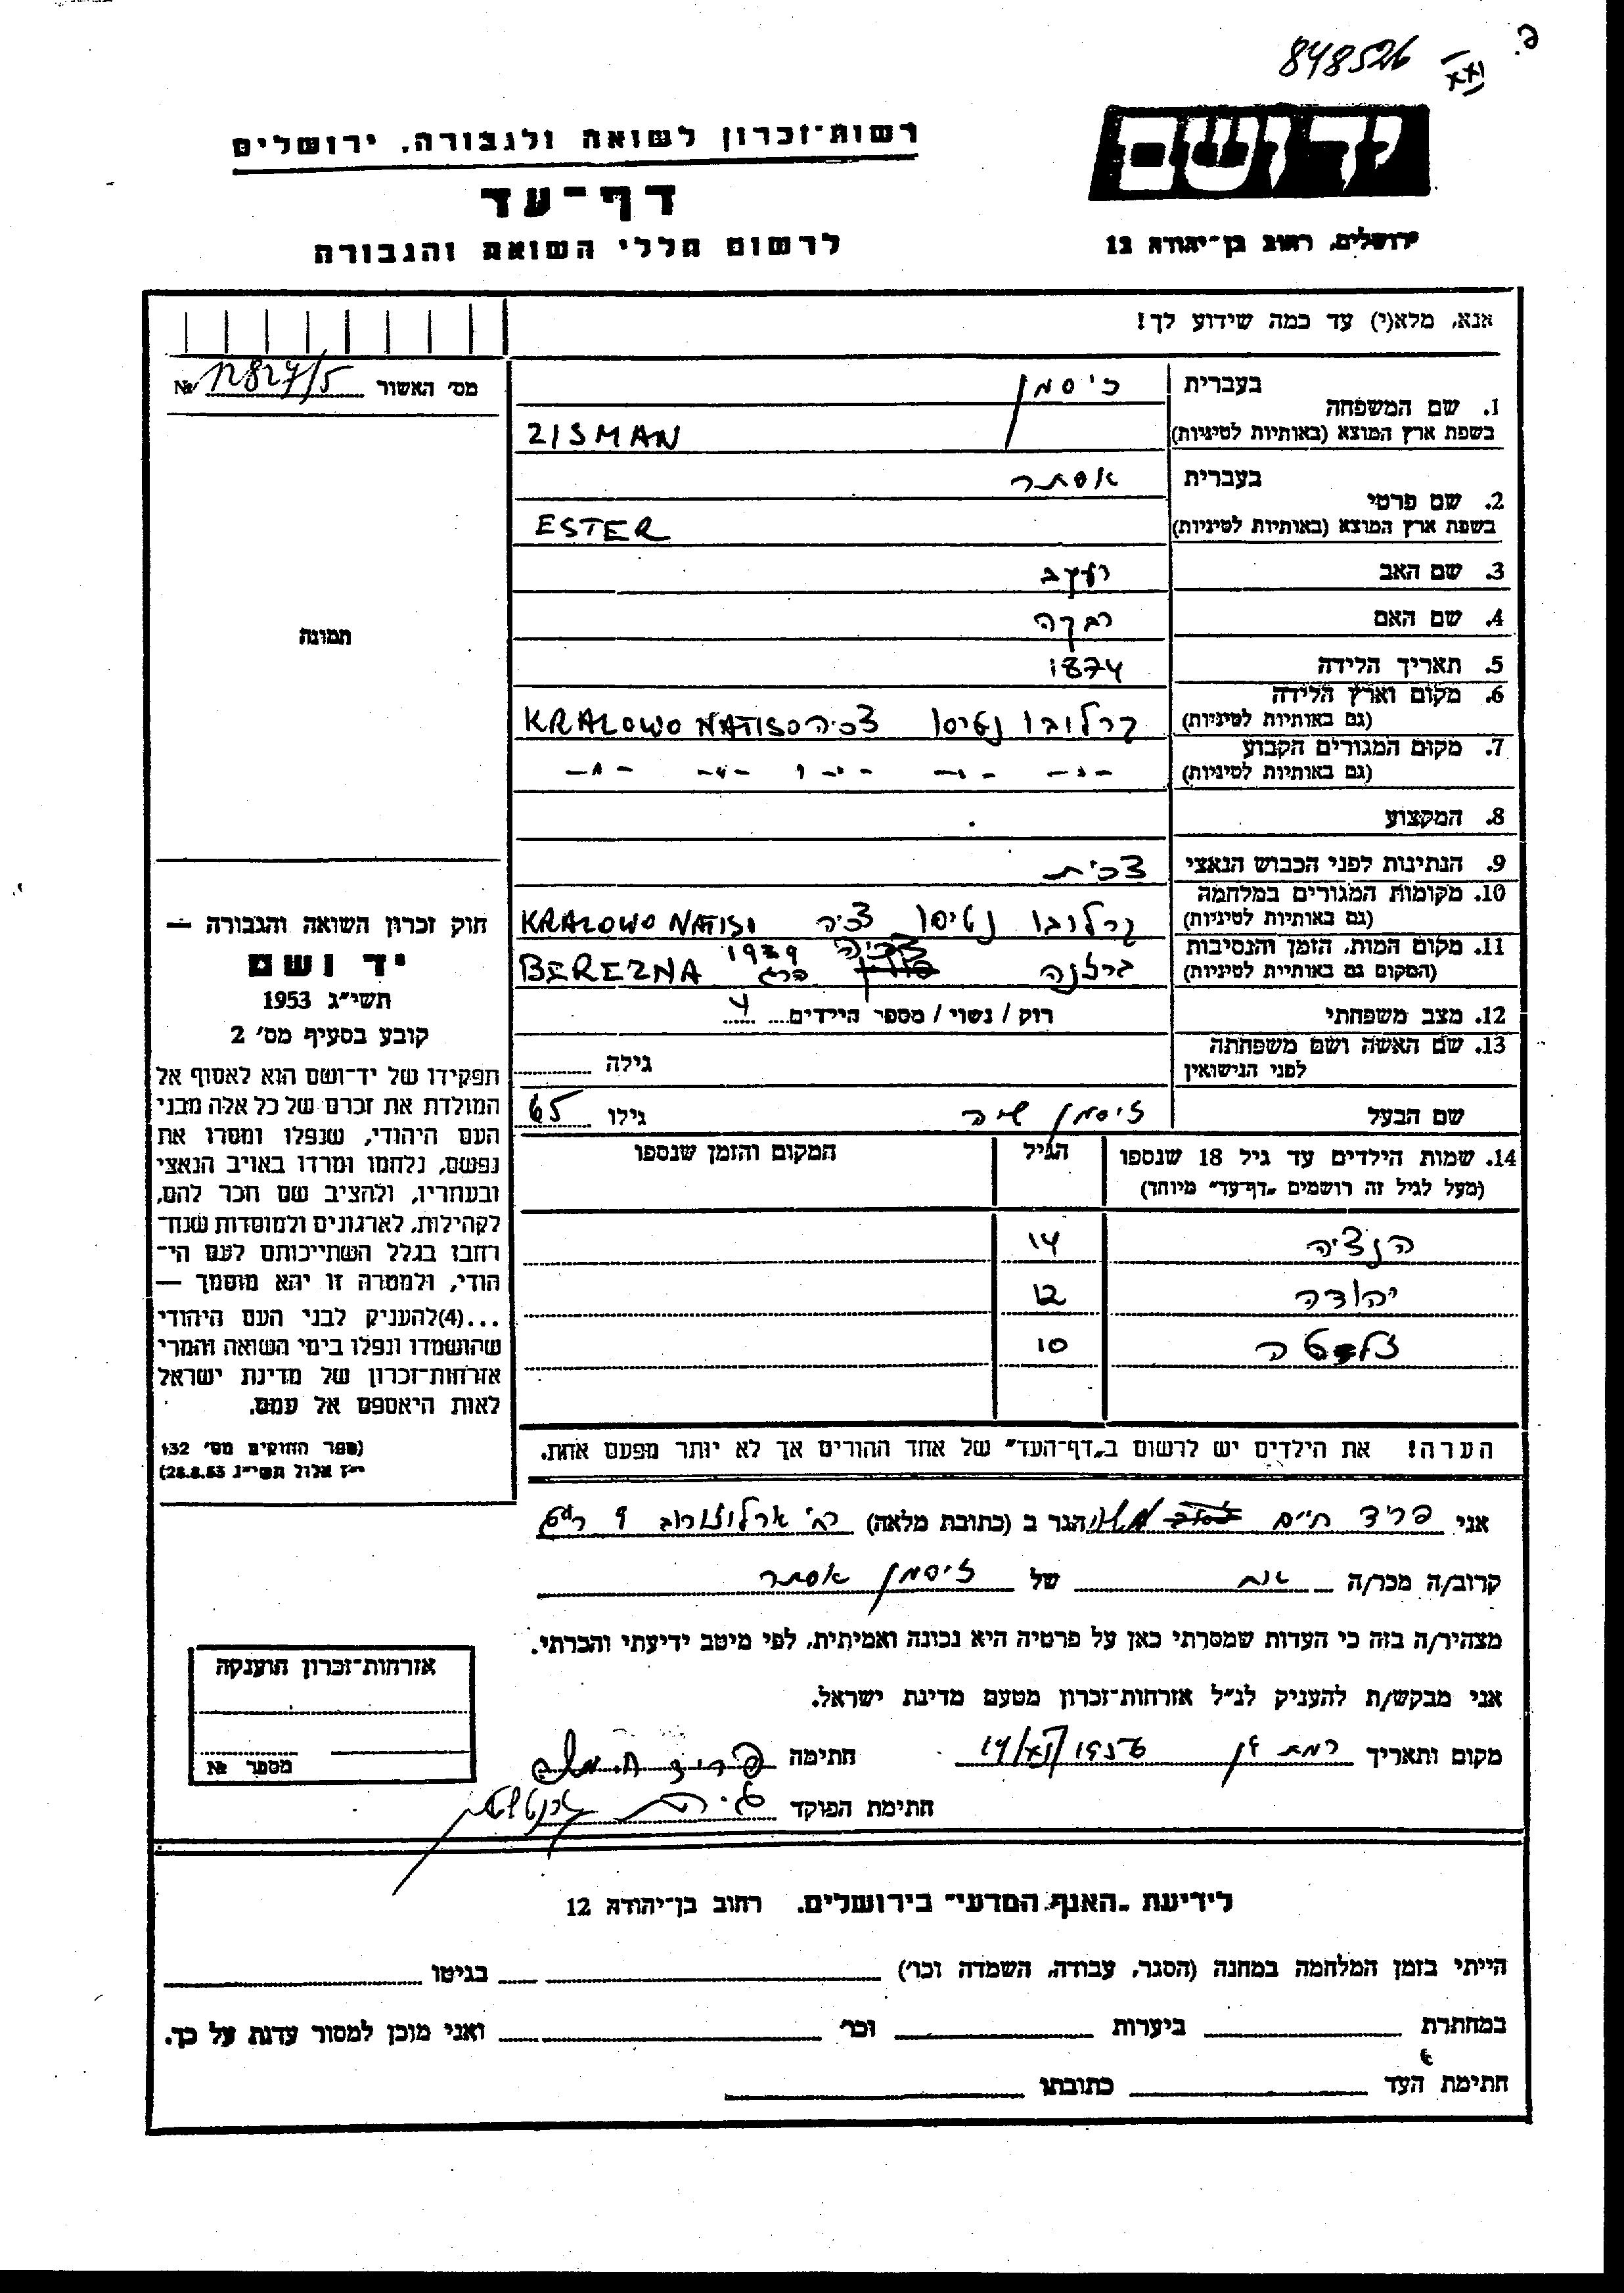 848526
XXI
רשות־זכרון לשואה ולגבורה, ירושלים
דף־עד
לרשום חללי השואה והגבורה
יד ושם
ירושלים, רחוב בן־יהודה 12
אנא, מלא(י) עד כמה שידוע לך!
מס׳ האשור № 12827/5
תמונה
1. שם המשפחה
בעברית זיסמן
בשפת ארץ המוצא (באותיות לטיניות) ZISMAN
2. שם פרטי
בעברית אסתר
בשפת ארץ המוצא (באותיות לטיניות) ESTER
3. שם האב יעקב
4. שם האם רבקה
5. תאריך הלידה 1874
6. מקום וארץ הלידה
(גם באותיות לטיניות) קרלובו נטיסו צכיה KRALOWO NATISO
7. מקום המגורים הקבוע
(גם באותיות לטיניות) — " — " — " —
8. המקצוע
9. הנתינות לפני הכבוש הנאצי צכית
10. מקומות המגורים במלחמה
(גם באותיות לטיניות) קרלובו נטיסו צכיה KRALOWO NATISI
11. מקום המות, הזמן והנסיבות
(המקום גם באותיית לטיניות) ברזנה צכיה 1939 הרג BEREZNA
12. מצב משפחתי רוק / נשוי / מספר הילדים 4
13. שם האשה ושם משפחתה
לפני הנישואין גילה
שם הבעל זיסמן שיה גילו 65
14. שמות הילדים עד גיל 18 שנספו הגיל המקום והזמן שנספו
(מעל לגיל זה רושמים „דף־עד״ מיוחד)
הנציה 14
יהודה 12
זלטה 10
הערה! את הילדים יש לרשום ב„דף־העד״ של אחד ההורים אך לא יותר מפעם אחת.
חוק זכרון השואה והגבורה —
יד ושם
תשי״ג 1953
קובע בסעיף מס׳ 2
תפקידו של יד־ושם הוא לאסוף אל
המולדת את זכרם של כל אלה מבני
העם היהודי, שנפלו ומסרו את
נפשם, נלחמו ומרדו באויב הנאצי
ובעוזריו, ולהציב שם וזכר להם,
לקהילות, לארגונים ולמוסדות שנח־
רחבו בגלל השתייכותם לעם הי־
הודי, ולמטרה זו יהא מוסמך —
...(4)להעניק לבני העם היהודי
שהושמדו ונפלו בימי השואה והמרי
אזרחות־זכרון של מדינת ישראל
לאות היאספם אל עמם.
(ספר החוקים מס׳ 132
י״ז אלול תשי״ג 28.8.53)
אני פריד חיים הגר ב (כתובת מלאה) רח׳ ארלוזורוב 9
קרוב/ה מכר/ה של זיסמן אסתר
מצהיר/ה בזה כי העדות שמסרתי כאן על פרטיה היא נכונה ואמיתית, לפי מיטב ידיעתי והכרתי.
אני מבקש/ת להעניק לנ״ל אזרחות־זכרון מטעם מדינת ישראל.
מקום ותאריך רמת גן 14/XI/1956 חתימה פריד חיים
חתימת הפוקד
אזרחות־זכרון הוענקה
מספר №
לידיעת „האגף המדעי״ בירושלים, רחוב בן־יהודה 12
הייתי בזמן המלחמה במחנה (הסגר, עבודה, השמדה וכו׳) בגיטו
במחתרת ביערות וכו׳ ואני מוכן למסור עדות על כך.
חתימת העד כתובתו